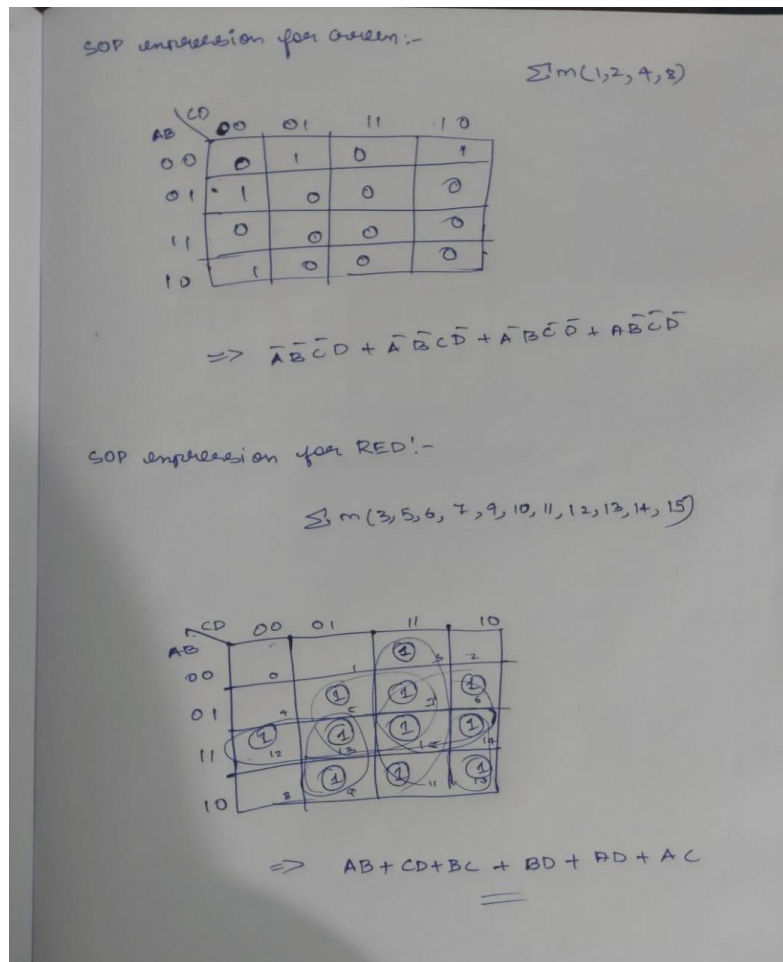 SOP expression for Green:-
Σm(1,2,4,8)
AB\CD 00 01 11 10
00 0 1 0 1
01 1 0 0 0
11 0 0 0 0
10 1 0 0 0
=> A̅B̅C̅D + A̅B̅CD̅ + A̅BC̅D̅ + AB̅C̅D̅
SOP expression for RED:-
Σm(3,5,6,7,9,10,11,12,13,14,15)
AB\CD 00 01 11 10
00 0 1 1 3 2
01 4 1 5 1 7 1 6
11 1 12 1 13 1 15 1 14
10 8 1 9 1 11 1 10
=> AB + CD + BC + BD + AD + AC